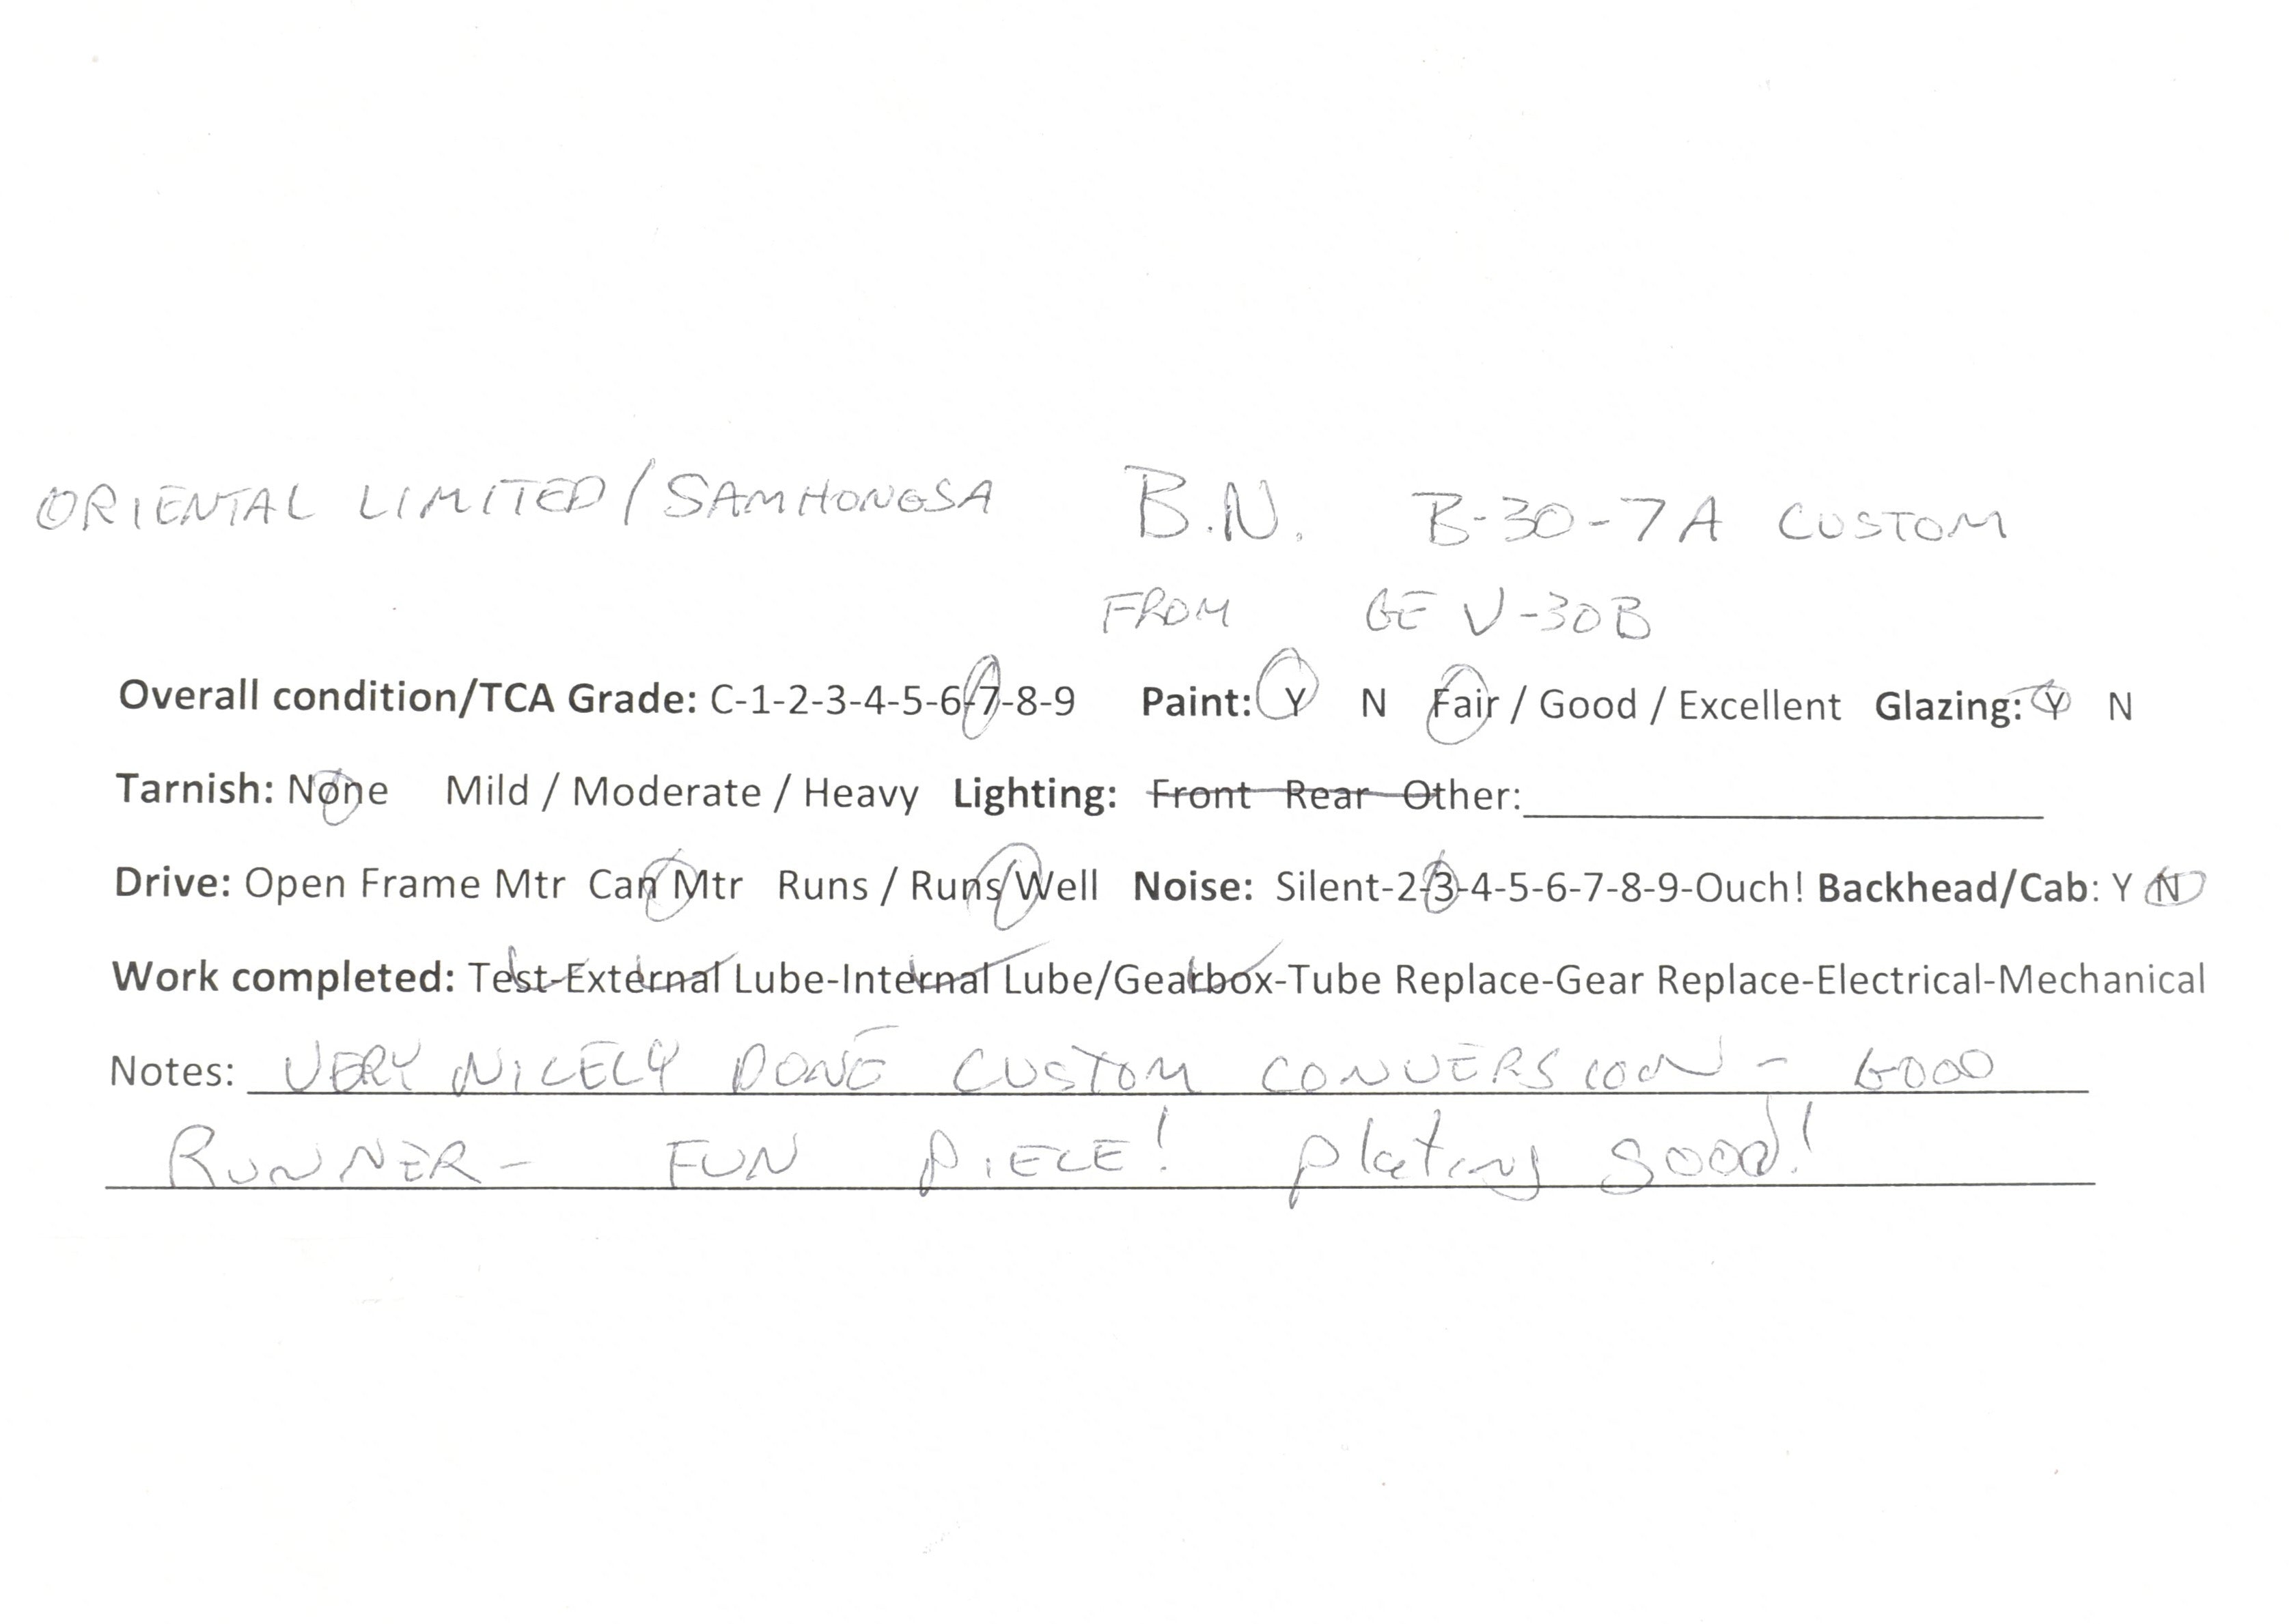 ORIENTAL LIMITED/SAMHONGSA B.N. B-30-7A CUSTOM
FROM GE U-30B
Overall condition/TCA Grade: C-1-2-3-4-5-6-7-8-9 Paint: Y N Fair / Good / Excellent Glazing: Y N
Tarnish: None Mild / Moderate / Heavy Lighting: Front Rear Other:
Drive: Open Frame Mtr Can Mtr Runs / Runs Well Noise: Silent-2-3-4-5-6-7-8-9-Ouch! Backhead/Cab: Y N
Work completed: Test-External Lube-Internal Lube/Gearbox-Tube Replace-Gear Replace-Electrical-Mechanical
Notes: VERY NICELY DONE CUSTOM CONVERSION - GOOD
RUNNER - FUN PIECE! plating good!